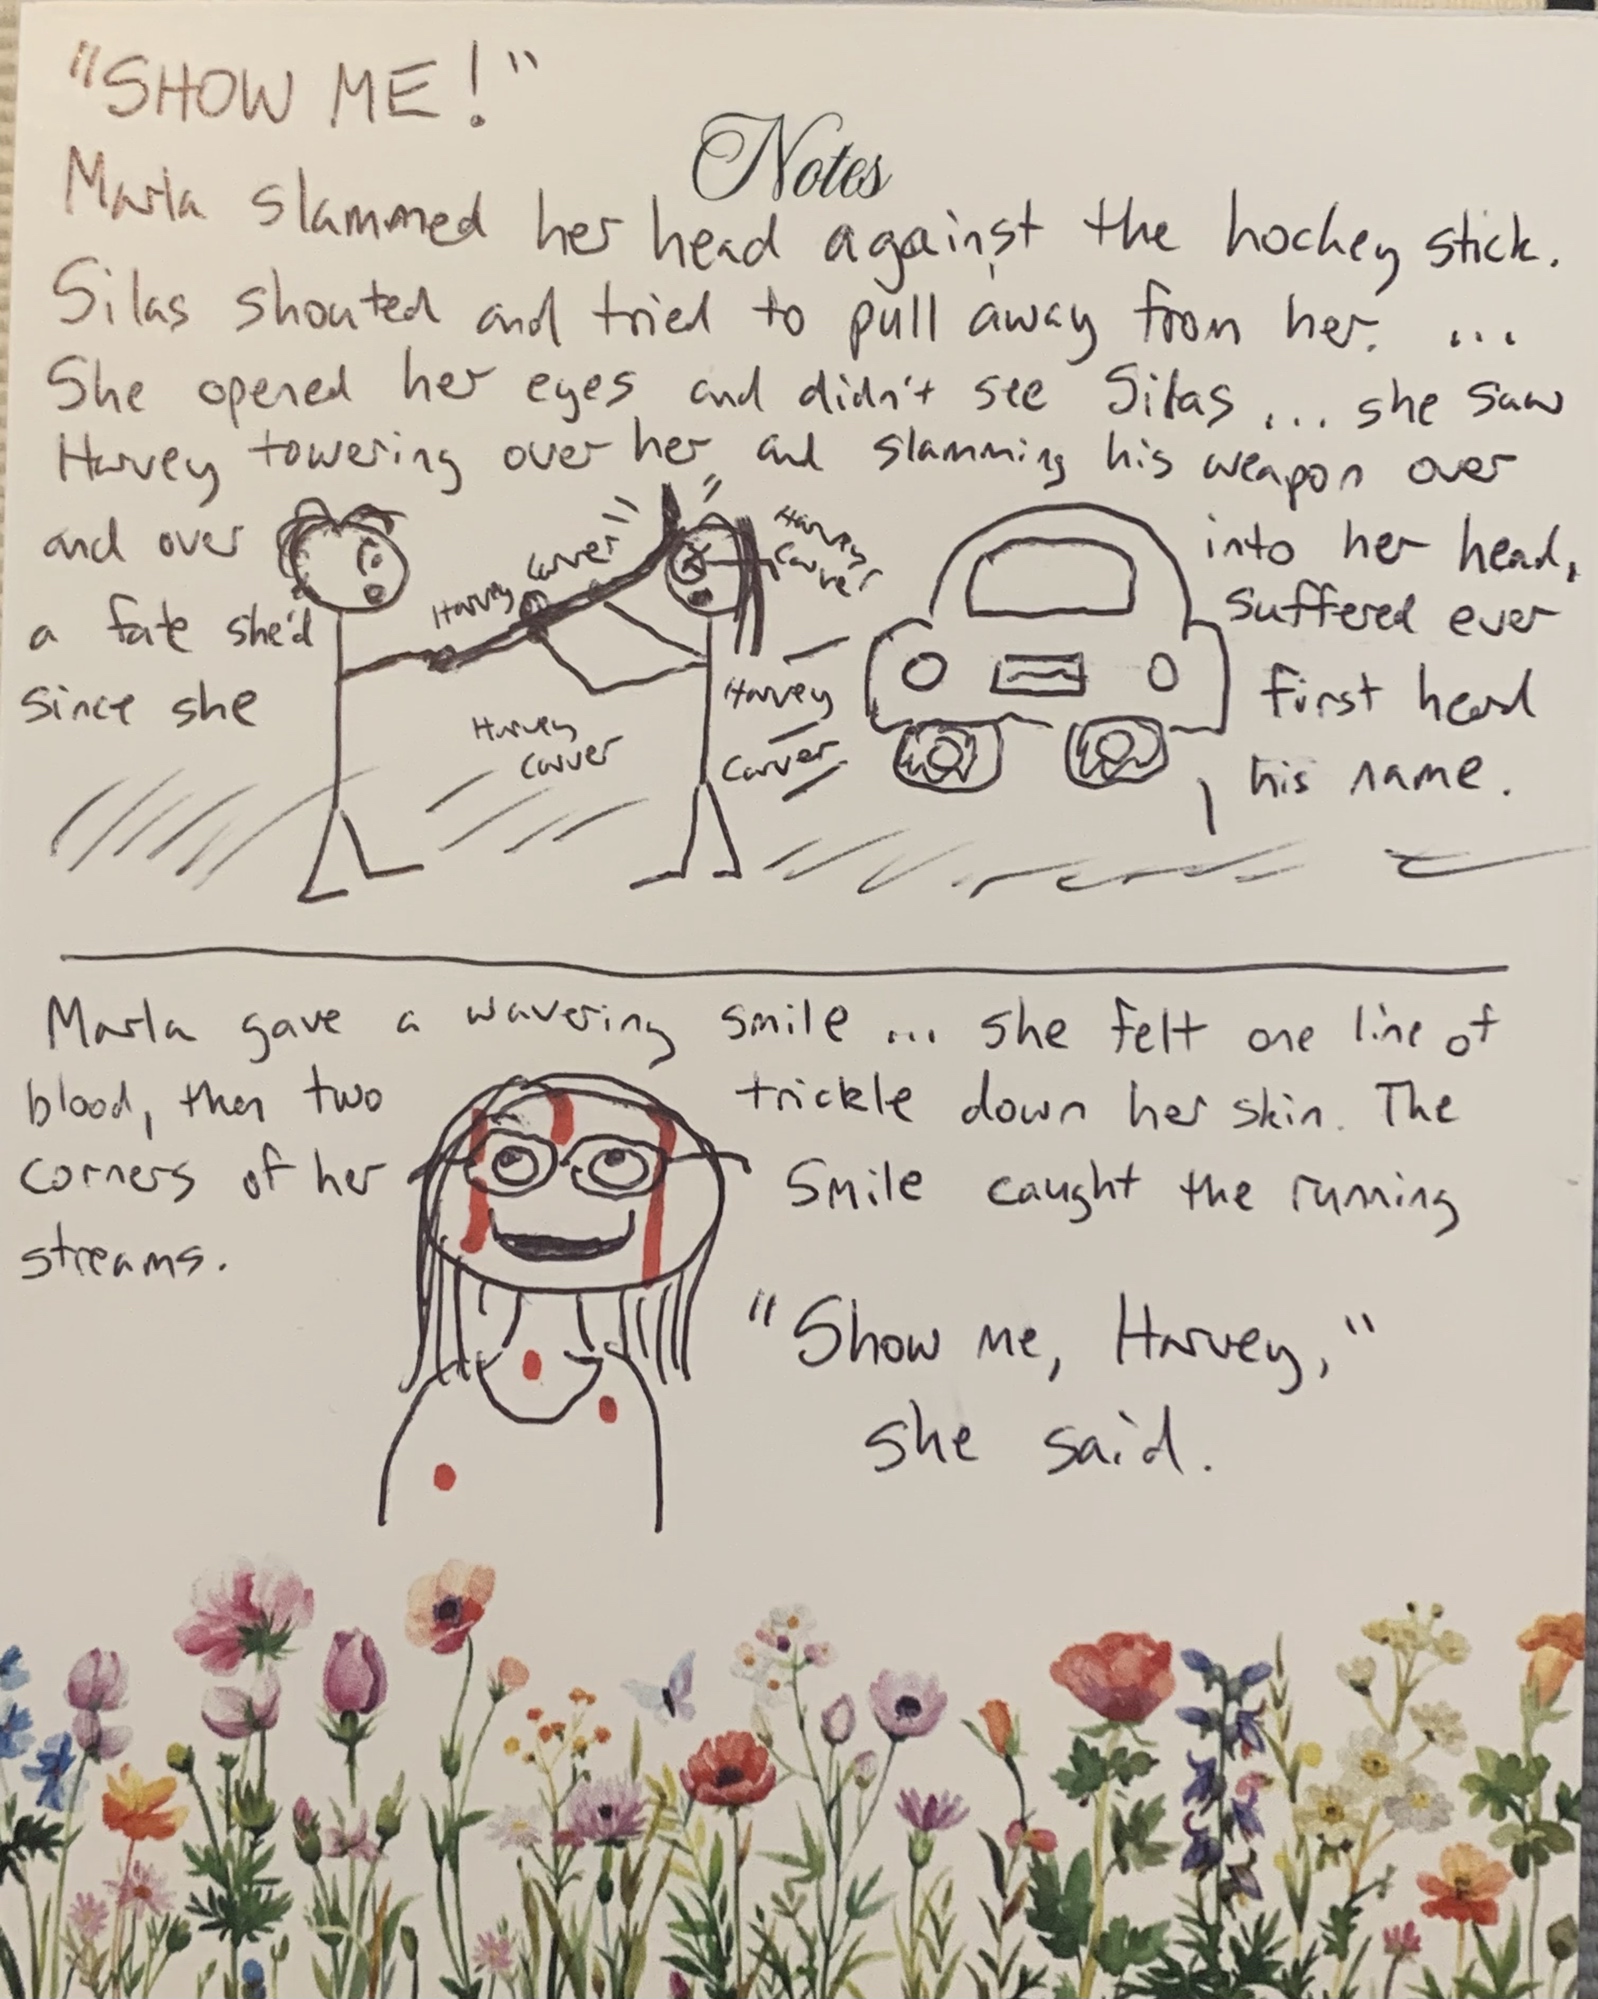 "SHOW ME!"
Notes
Marla slammed her head against the hockey stick.
Silas shouted and tried to pull away from her. ...
She opened her eyes and didn't see Silas ... she saw
Harvey towering over her and slamming his weapon over
and over into her head,
a fate she'd suffered ever
since she first heard
his name.
Harvey Carver
Harvey
Carver
Harvey
Carver
Harvey
Carver
Marla gave a wavering smile ... she felt one line of
blood, then two trickle down her skin. The
corners of her smile caught the running
streams.
"Show me, Harvey,"
she said.